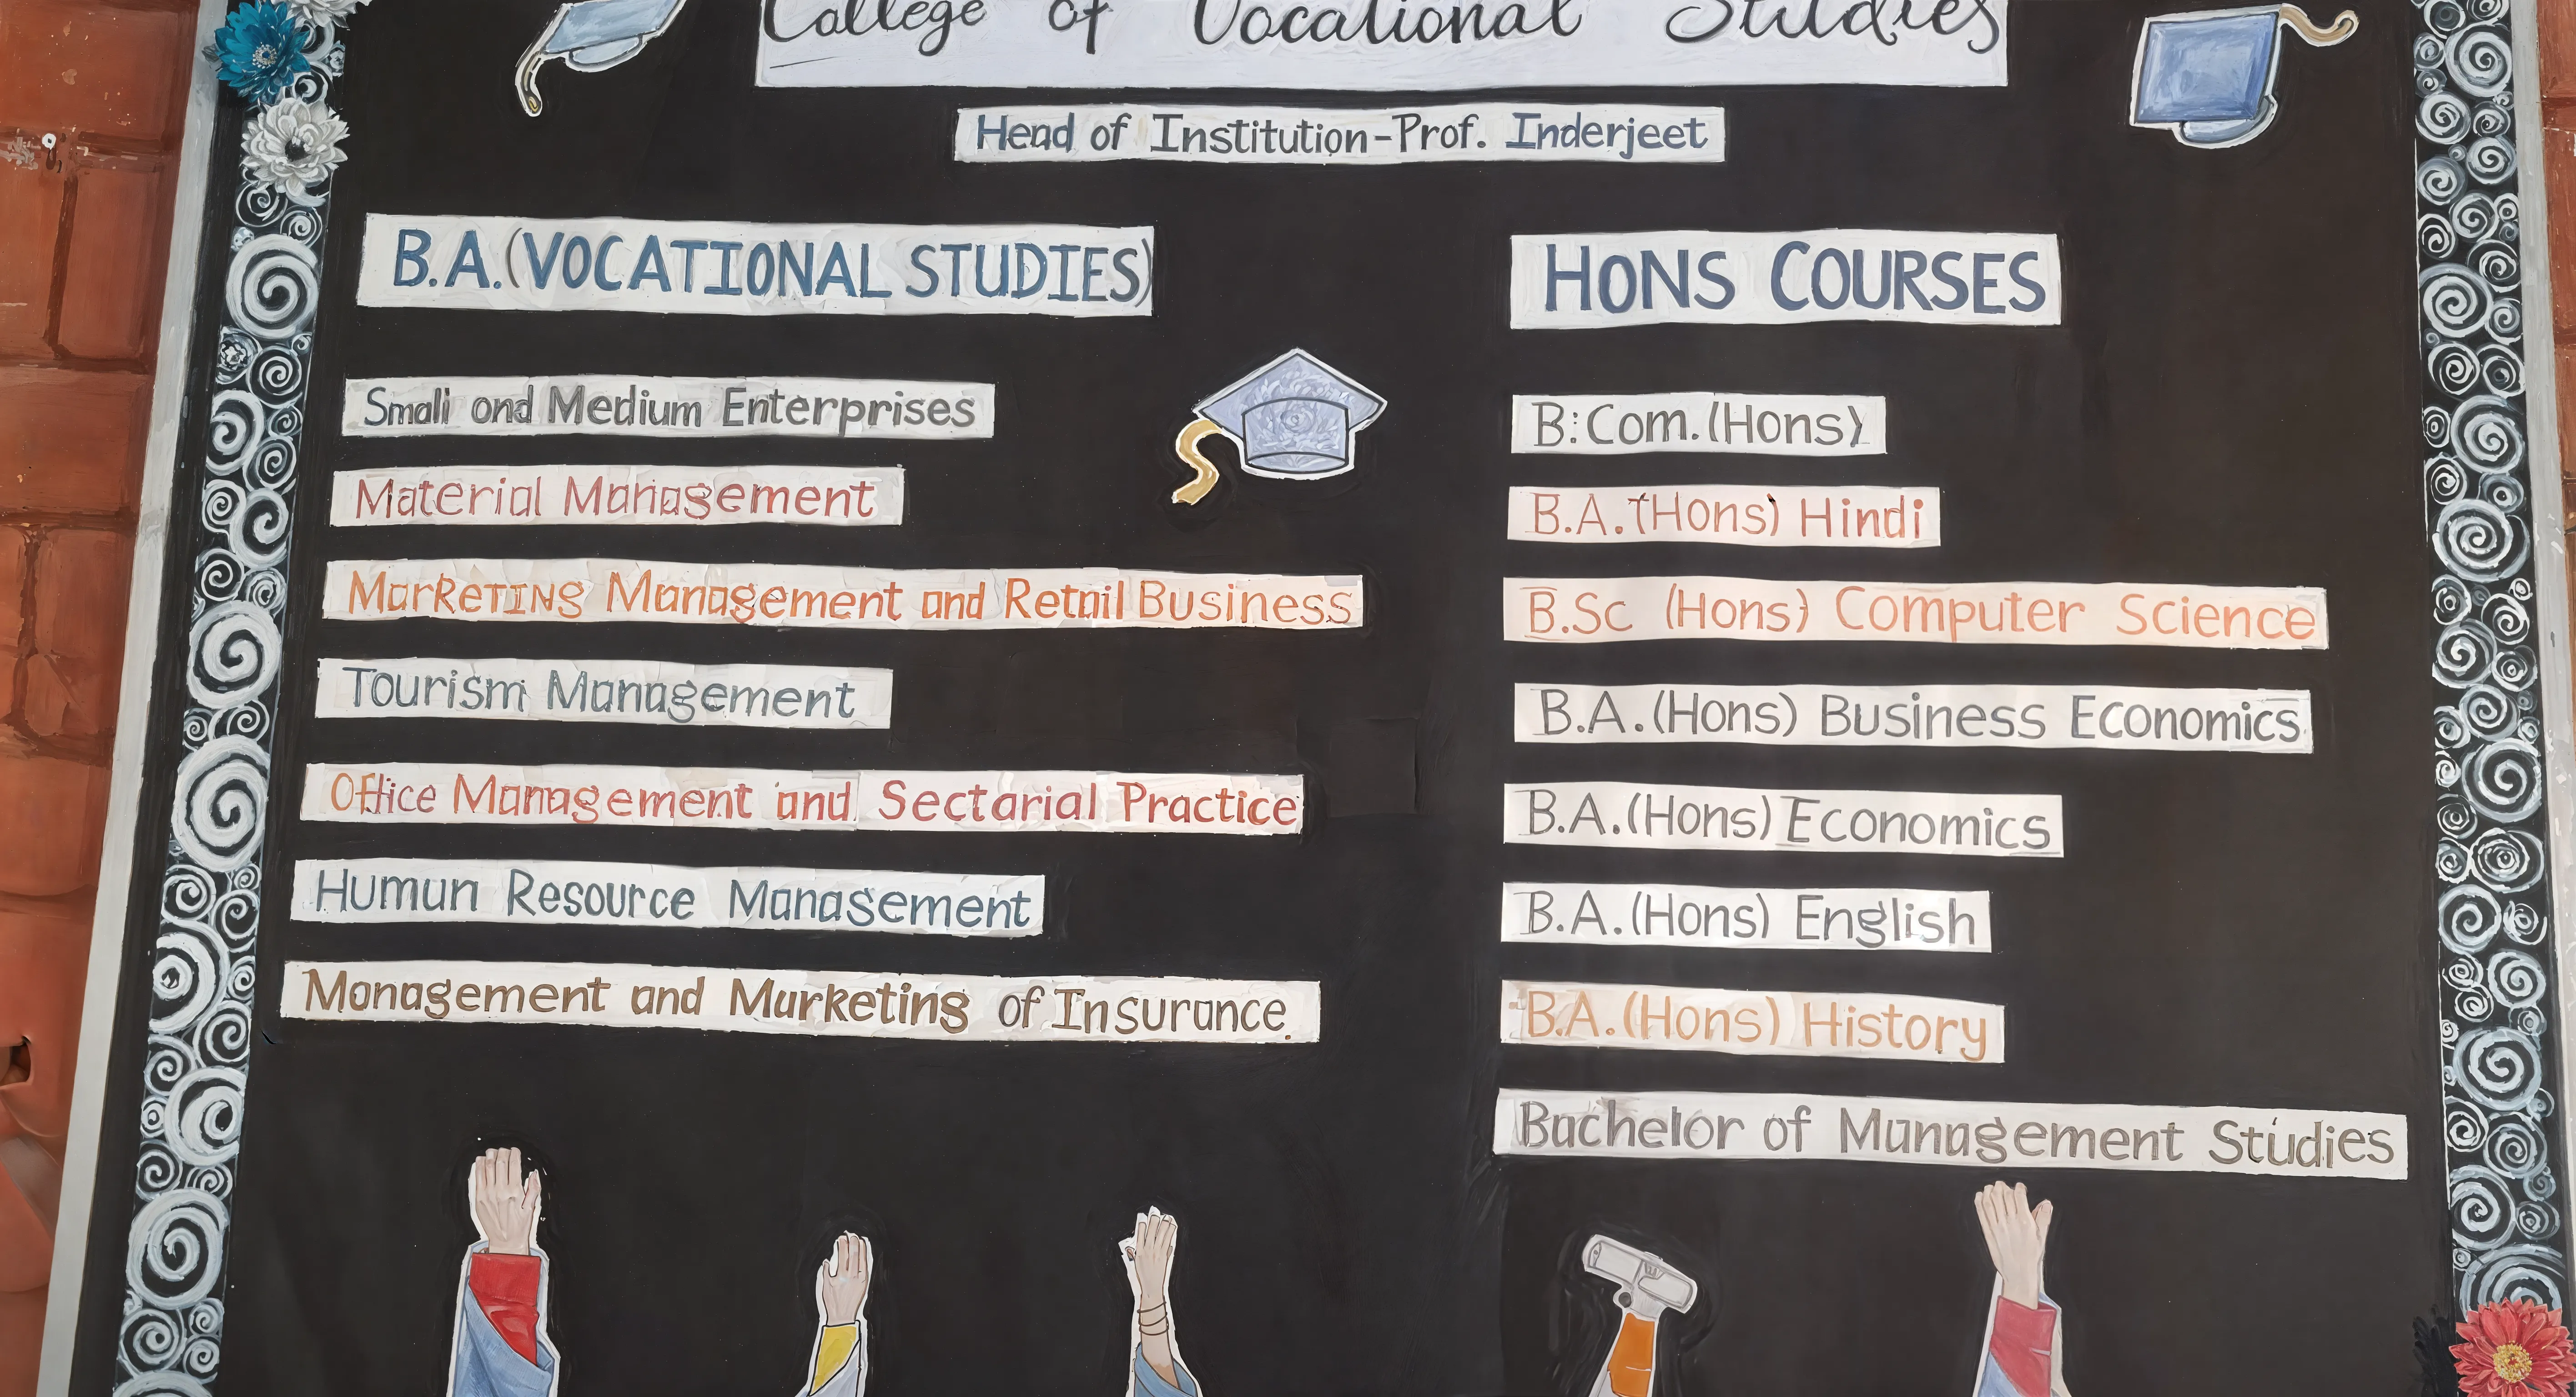 College of Vocational Studies
Head of Institution-Prof. Inderjeet
B.A.(VOCATIONAL STUDIES)
Small and Medium Enterprises
Material Management
Marketing Management and Retail Business
Tourism Management
Office Management and Sectarial Practice
Human Resource Management
Management and Marketing of Insurance.
HONS COURSES
B.Com.(Hons)
B.A.(Hons) Hindi
B.Sc (Hons) Computer Science
B.A.(Hons) Business Economics
B.A.(Hons) Economics
B.A.(Hons) English
B.A.(Hons) History
Bachelor of Management Studies